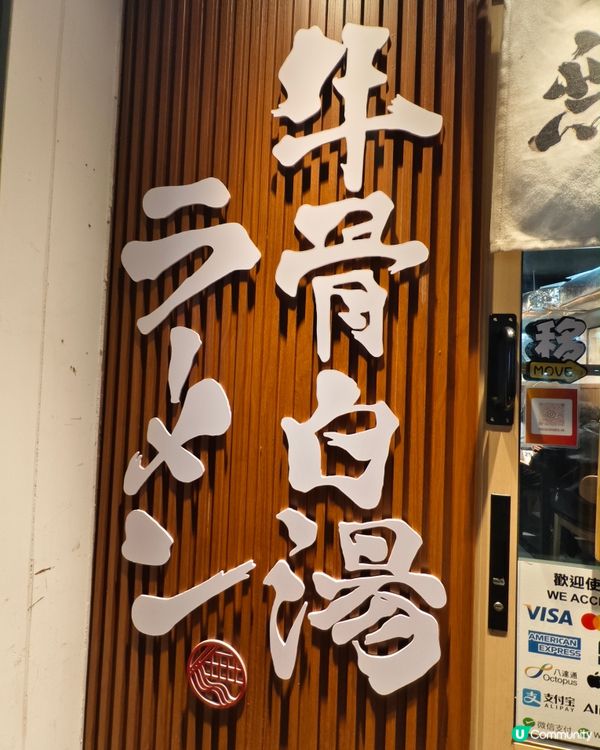 牛骨白湯
ラーメン
移
MOVE
歡迎使
WE ACC
VISA
AMERICAN
EXPRESS
八達通
Octopus
支付宝
ALIPAY
Ali
微信支付
U Community